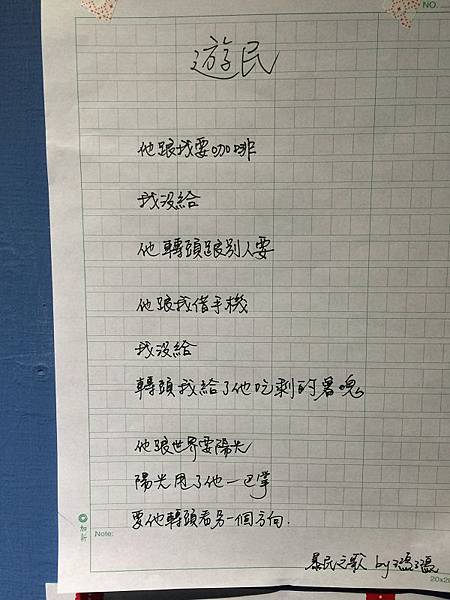 NO.
遊民
他跟我要咖啡
我沒給
他轉頭跟別人要
他跟我借手機
我沒給
轉頭我給了他吃剩的署塊
他跟世界要陽光
陽光甩了他一巴掌
要他轉頭看另一個方向.
加新
Note:
暴民之歌 by